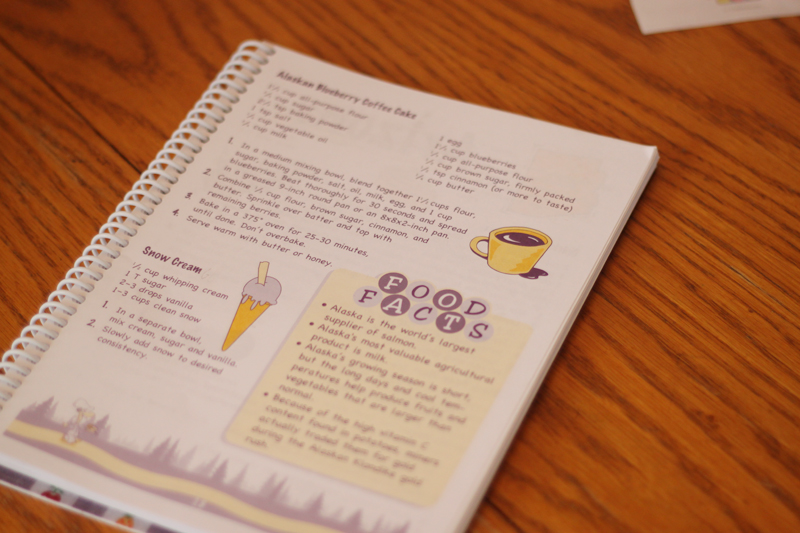 Alaskan Blueberry Coffee Cake
1½ cup all-purpose flour
½ cup sugar
2½ tsp baking powder
1 tsp salt
¼ cup vegetable oil
cup milk
1 egg
1½ cup blueberries
cup all-purpose flour
cup brown sugar, firmly packed
tsp cinnamon (or more to taste)
¼ cup butter
1. In a medium mixing bowl, blend together 1½ cups flour,
sugar, baking powder, salt, oil, milk, egg, and 1 cup
blueberries. Beat thoroughly for 30 seconds and spread
in a greased 9-inch round pan or an 8x8x2-inch pan.
2. Combine cup flour, brown sugar, cinnamon, and
butter. Sprinkle over batter and top with
remaining berries.
3. Bake in a 375° oven for 25-30 minutes,
until done. Don't overbake.
4. Serve warm with butter or honey.
Snow Cream
½ cup whipping cream
1 T sugar
2-3 drops vanilla
1-3 cups clean snow
1. In a separate bowl,
mix cream, sugar and vanilla.
2. Slowly add snow to desired
consistency.
FOOD
FACTS
• Alaska is the world's largest
supplier of salmon.
• Alaska's most valuable agricultural
product is milk.
• Alaska's growing season is short,
but the long days and cool tem-
peratures help produce fruits and
vegetables that are larger than
normal.
• Because of the high vitamin C
content found in potatoes, miners
actually traded them for gold
during the Alaskan Klondike gold
rush.